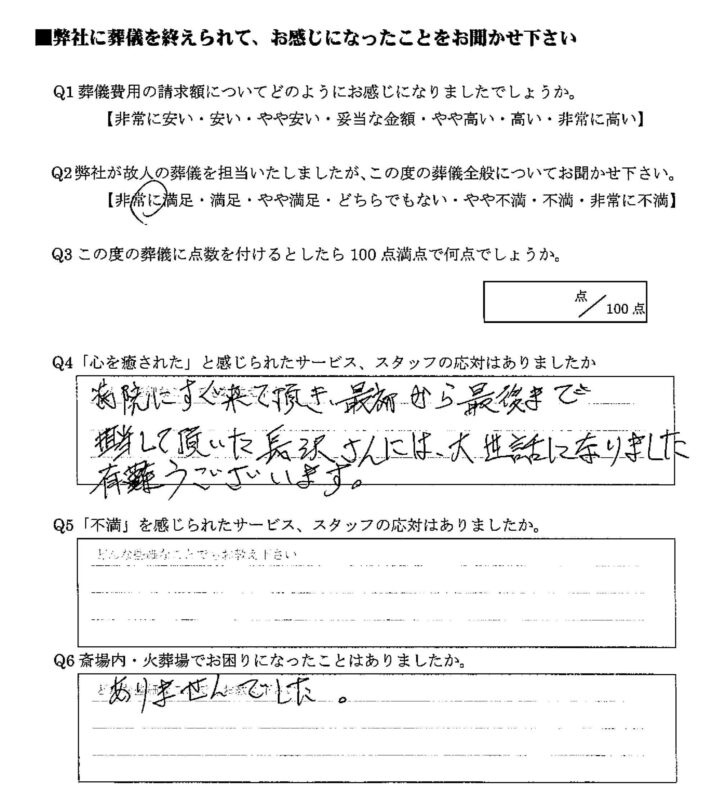 ■弊社に葬儀を終えられて、お感じになったことをお聞かせ下さい
Q1 葬儀費用の請求額についてどのようにお感じになりましたでしょうか。
【非常に安い・安い・やや安い・妥当な金額・やや高い・高い・非常に高い】
Q2弊社が故人の葬儀を担当いたしましたが、この度の葬儀全般についてお聞かせ下さい。
【非常に満足・満足・やや満足・どちらでもない・やや不満・不満・非常に不満】
Q3 この度の葬儀に点数を付けるとしたら 100 点満点で何点でしょうか。
点／100 点
Q4「心を癒された」と感じられたサービス、スタッフの応対はありましたか
病院にすぐ来て頂き、最初から最後まで
担当して頂いた長沢さんには、大世話になりました
有難うございます。
Q5「不満」を感じられたサービス、スタッフの応対はありましたか。
どんな些細なことでもお教え下さい
Q6 斎場内・火葬場でお困りになったことはありましたか。
ありませんでした。